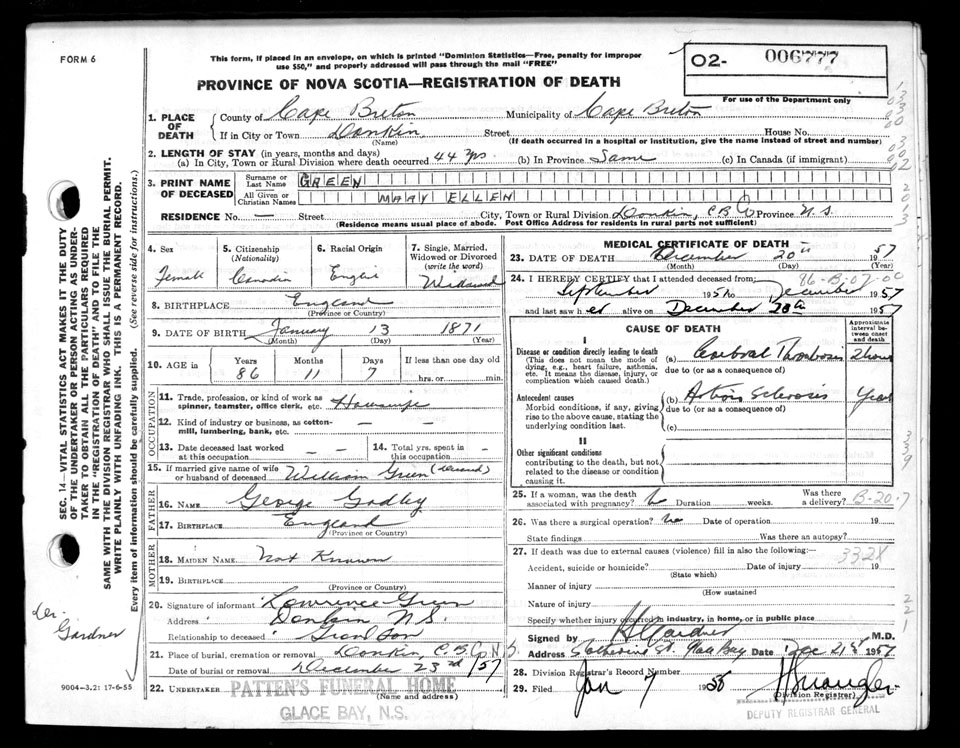 FORM 6
This form, if placed in an envelope, on which is printed "Dominion Statistics—Free, penalty for improper
use $50," and properly addressed will pass through the mail "FREE"
PROVINCE OF NOVA SCOTIA—REGISTRATION OF DEATH
O2- 006777
For use of the Department only
1. PLACE OF DEATH
County of Cape Breton Municipality of Cape Breton
If in City or Town Donkin Street House No.
(Name) (If death occurred in a hospital or institution, give the name instead of street and number)
2. LENGTH OF STAY (in years, months and days)
(a) In City, Town or Rural Division where death occurred 44 yrs (b) In Province Same (c) In Canada (if immigrant)
3. PRINT NAME OF DECEASED
Surname or Last Name GREEN
All Given or Christian Names MARY ELLEN
RESIDENCE No. — Street City, Town or Rural Division Donkin, C B Co Province N.S.
(Residence means usual place of abode. Post Office Address for residents in rural parts not sufficient)
4. Sex 5. Citizenship (Nationality) 6. Racial Origin 7. Single, Married, Widowed or Divorced (write the word)
Female Canadian Widowed
8. BIRTHPLACE England
(Province or Country)
9. DATE OF BIRTH January 13 1871
(Month) (Day) (Year)
10. AGE in Years Months Days If less than one day old
86 11 7 hrs. or min.
OCCUPATION
11. Trade, profession, or kind of work as spinner, teamster, office clerk, etc. Housewife
12. Kind of industry or business, as cotton-mill, lumbering, bank, etc. —
13. Date deceased last worked at this occupation — — 14. Total yrs. spent in this occupation —
15. If married give name of wife or husband of deceased William Green (deceased)
FATHER
16. NAME George Godley
17. BIRTHPLACE England
(Province or Country)
MOTHER
18. MAIDEN NAME Not Known
19. BIRTHPLACE
(Province or Country)
20. Signature of informant Lawrence Green
Address Donkin N.S.
Relationship to deceased Grand Son
21. Place of burial, cremation or removal Donkin, C.B. Co N.S.
Date of burial or removal December 23rd /57
22. UNDERTAKER PATTEN'S FUNERAL HOME
(Name and address)
GLACE BAY, N.S.
MEDICAL CERTIFICATE OF DEATH
23. DATE OF DEATH December 20th 1957
(Month) (Day) (Year)
24. I HEREBY CERTIFY that I attended deceased from:
86-B-07-00
September 195 to December 1957
and last saw her alive on December 20th 1957
CAUSE OF DEATH
Approximate interval between onset and death
I
Disease or condition directly leading to death
(This does not mean the mode of dying, e.g., heart failure, asthenia, etc. It means the disease, injury, or complication which caused death.)
(a) Cerebral Thrombosis 2 hours
due to (or as a consequence of)
Antecedent causes
Morbid conditions, if any, giving rise to the above cause, stating the underlying condition last.
(b) Arterio Sclerosis Years
due to (or as a consequence of)
(c)
II
Other significant conditions
contributing to the death, but not related to the disease or condition causing it.
25. If a woman, was the death associated with pregnancy? Duration weeks. Was there a delivery? B-20.7
26. Was there a surgical operation? No Date of operation 19
State findings Was there an autopsy?
27. If death was due to external causes (violence) fill in also the following:—
332X
Accident, suicide or homicide? Date of injury 19
(State which)
Manner of injury
(How sustained
Nature of injury
Specify whether injury occurred in industry, in home, or in public place
Signed by H Gardner M.D.
Address St. Glace Bay Date Dec 21st 1957
28. Division Registrar's Record Number
29. Filed Jan 7 1958
(Division Registrar)
DEPUTY REGISTRAR GENERAL
SEC. 14—VITAL STATISTICS ACT MAKES IT THE DUTY
OF THE UNDERTAKER OR PERSON ACTING AS UNDER-
TAKER TO OBTAIN ALL THE PARTICULARS REQUIRED
IN THE "REGISTRATION OF DEATH" AND TO FILE THE
SAME WITH THE DIVISION REGISTRAR WHO SHALL ISSUE THE BURIAL PERMIT.
WRITE PLAINLY WITH UNFADING INK. THIS IS A PERMANENT RECORD.
Every item of information should be carefully supplied. (See reverse side for instructions.)
Dr.
Gardner
9004-3.21 17-6-55